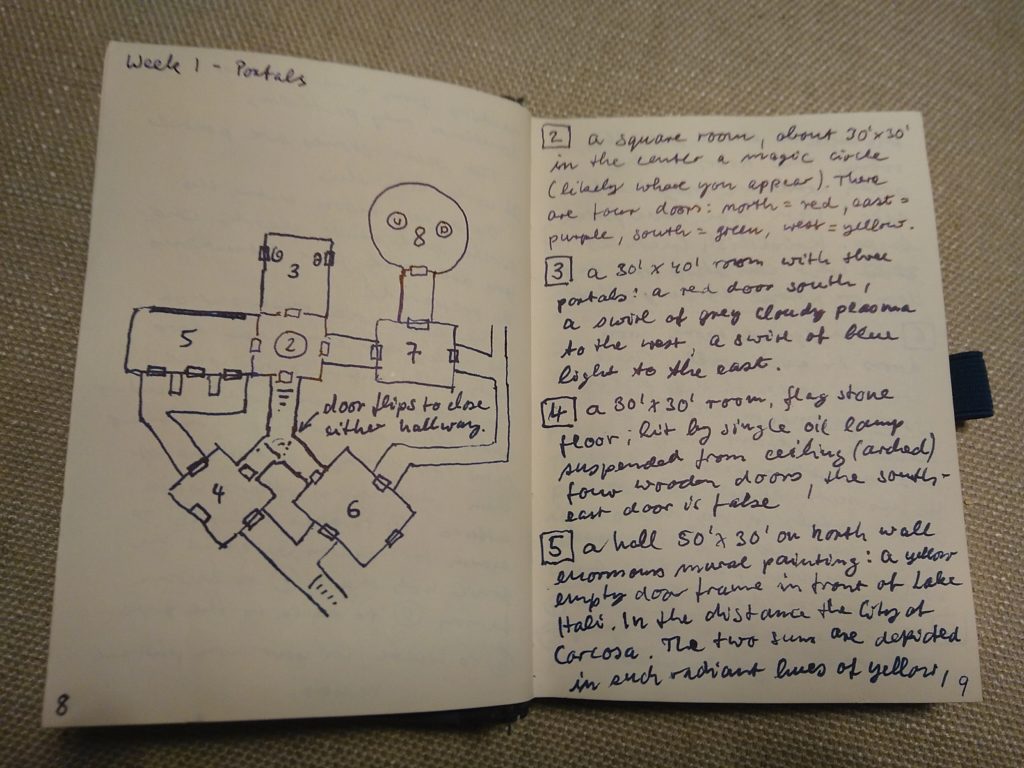 Week 1 - Portals
8
3
5
2
7
door flips to close
either hallway.
4
6
8
2 a square room, about 30'x30'
in the center a magic circle
(likely where you appear). There
are four doors: north = red, east =
purple, south = green, west = yellow.
3 a 30' x 40' room with three
portals: a red door south,
a swirl of grey cloudy plasma
to the west, a swirl of blue
light to the east.
4 a 30'x30' room, flag stone
floor; lit by single oil lamp
suspended from ceiling (arched)
four wooden doors, the south-
east door is false
5 a hall 50'x30' on north wall
enormous mural painting: a yellow
empty door frame in front of Lake
Hali. In the distance the City of
Carcosa. The two suns are depicted
in such radiant hues of yellow,
9